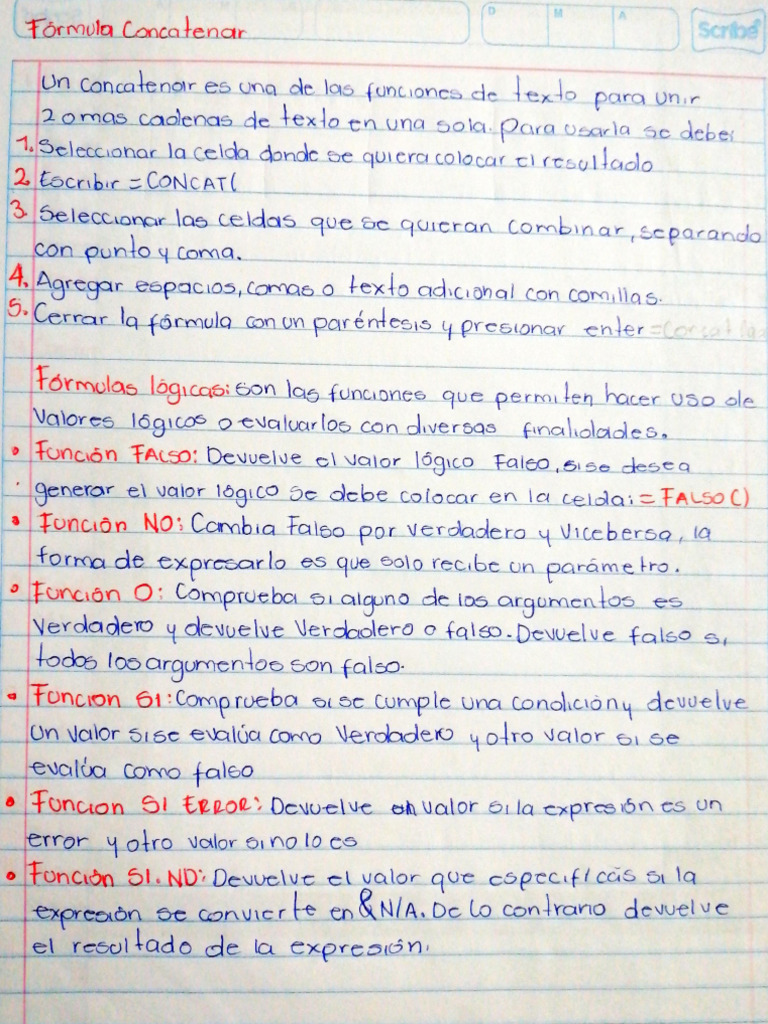 Fórmula Concatenar
D M A
Scribe
Un concatenar es una de las funciones de texto para unir
2 o mas cadenas de texto en una sola. Para usarla se debe:
1. Seleccionar la celda donde se quiera colocar el resultado
2. Escribir =CONCAT(
3. Seleccionar las celdas que se quieran combinar, separando
con punto y coma.
4. Agregar espacios, comas o texto adicional con comillas.
5. Cerrar la fórmula con un paréntesis y presionar enter
Fórmulas lógicas: son las funciones que permiten hacer uso de
valores lógicos o evaluarlos con diversas finalidades.
• Función FALSO: Devuelve el valor lógico Falso, si se desea
generar el valor lógico se debe colocar en la celda: = FALSO()
• Función NO: Cambia Falso por verdadero y vicebersa, la
forma de expresarlo es que solo recibe un parámetro.
• Función O: Comprueba si alguno de los argumentos es
verdadero y devuelve verdadero o falso. Devuelve falso si
todos los argumentos son falso.
• Funcion SI: Comprueba si se cumple una condición y devuelve
un valor si se evalúa como verdadero y otro valor si se
evalúa como falso
• Funcion SI ERROR: Devuelve valor si la expresión es un
error y otro valor si no lo es
• Función SI.ND: Devuelve el valor que especificás si la
expresión se convierte en &N/A. De lo contrario devuelve
el resultado de la expresión.